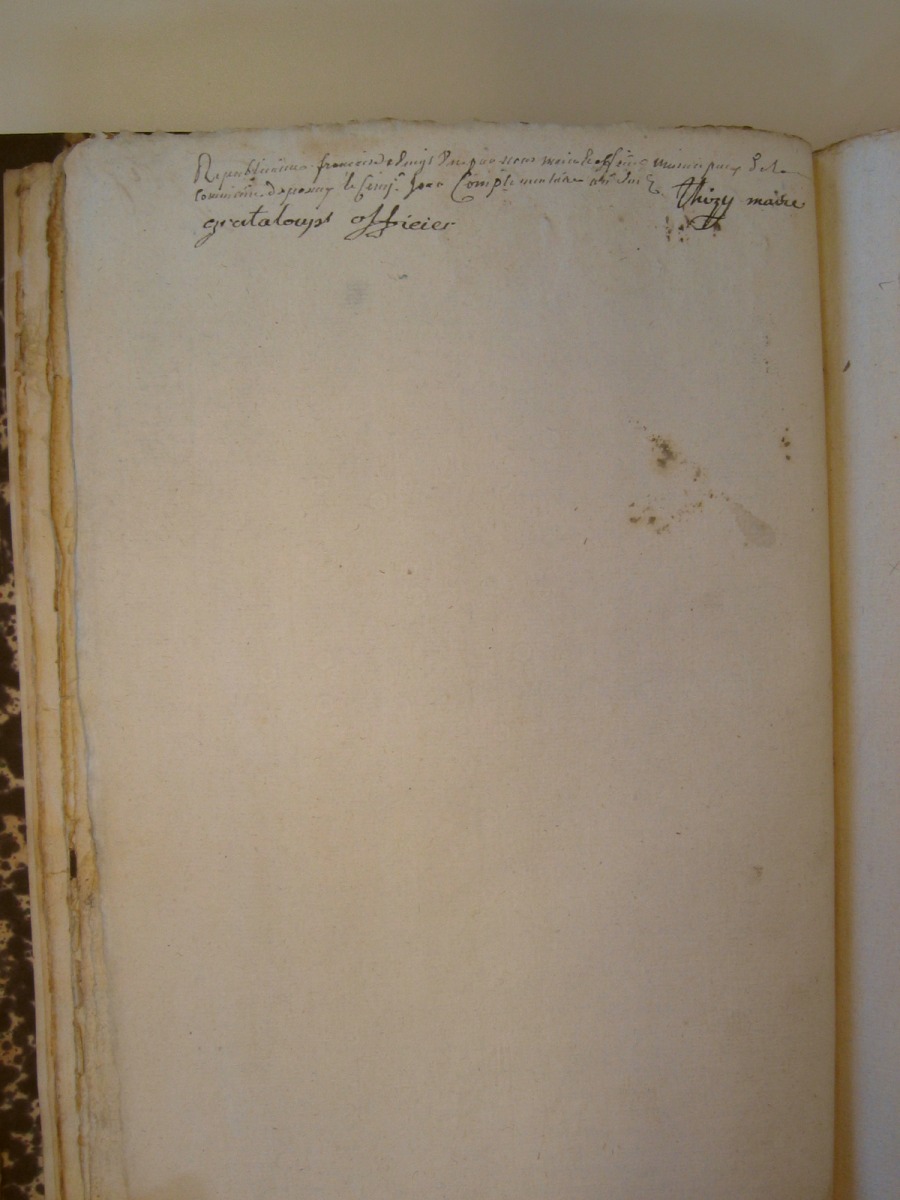 Republicainne francaise par nous maire & off municipaux de la
commune de le cinqe jour Complementaire an Thizy maire
grataloupt officier